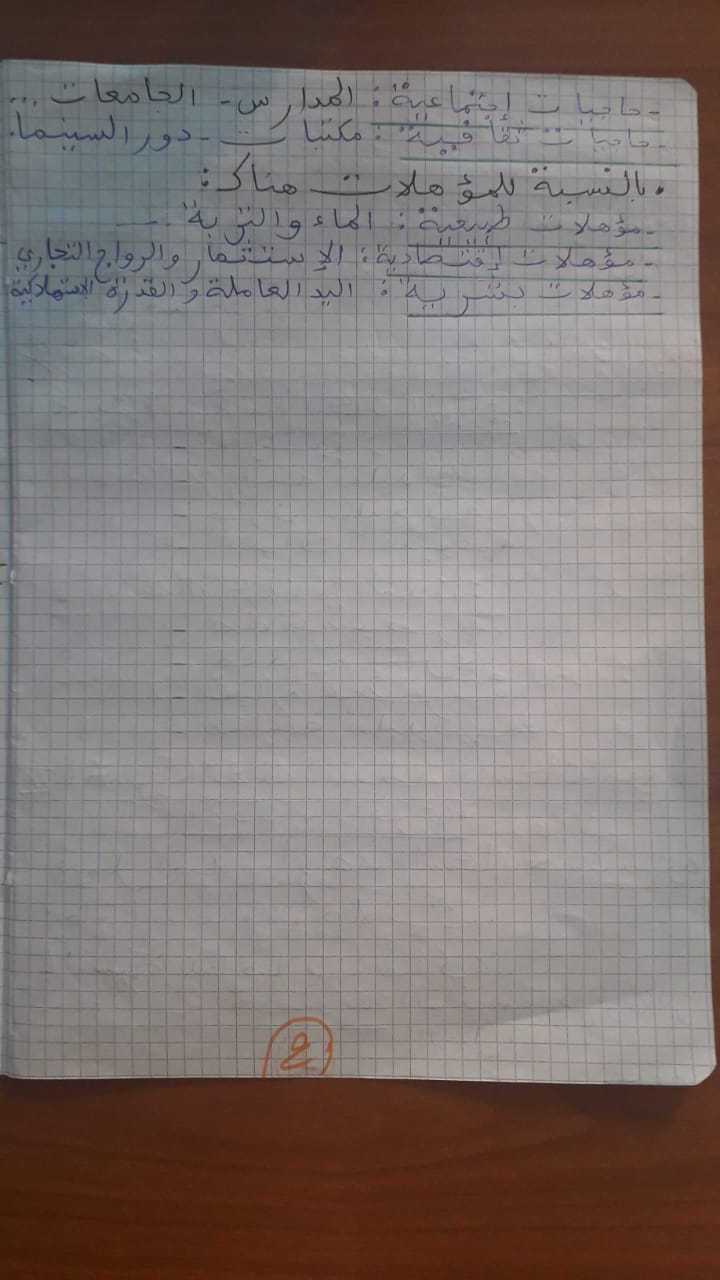 - حاجيات إجتماعية: المدارس - الجامعات ...
- حاجيات ثقافية: مكتبات - دور السينما.
• بالنسبة للمؤهلات هناك:
- مؤهلات طبيعية: الماء والتربة ...
- مؤهلات إقتصادية: الإستثمار والرواج التجاري
- مؤهلات بشرية: اليد العاملة والقدرة الاستهلاكية